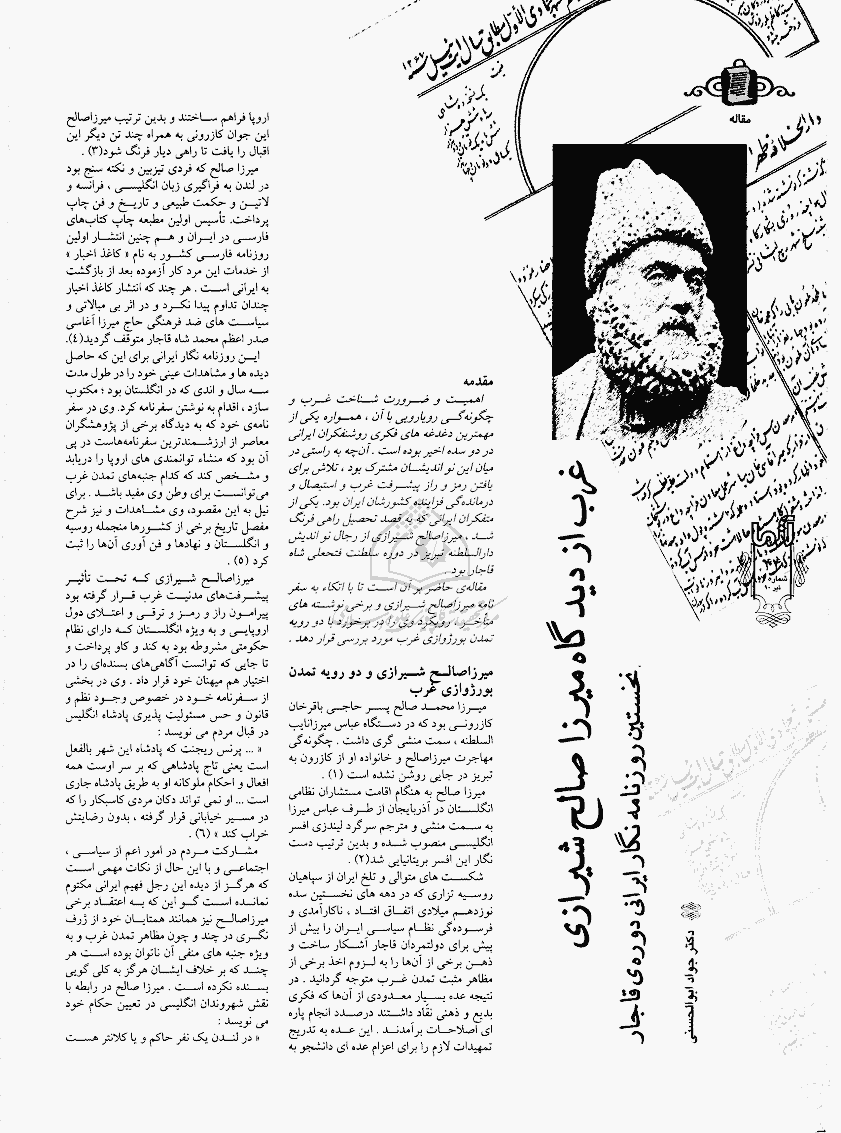 مقاله
غرب از دیدگاه میرزا صالح شیرازی
نخستین روزنامه نگار ایرانی دوره‌ی قاجار
دکتر جواد ابوالحسنی
مقدمه
اهمیت و ضرورت شناخت غرب و
چگونه‌گی رویارویی با آن ، همواره یکی از
مهمترین دغدغه های فکری روشنفکران ایرانی
در دو سده اخیر بوده است . آن‌چه به راستی در
میان این نو اندیشان مشترک بود ، تلاش برای
یافتن رمز و راز پیشرفت غرب و استیصال و
درمانده‌گی فزاینده کشورشان ایران بود. یکی از
متفکران ایرانی که به قصد تحصیل راهی فرنگ
شد ، میرزاصالح شیرازی از رجال نو اندیش
دارالسلطنه تبریز در دوره سلطنت فتحعلی شاه
قاجار بود .
مقاله‌ی حاضر بر آن است تا با اتکاء به سفر
نامه میرزاصالح شیرازی و برخی نوشته های
متأخر ، رویکرد وی را در برخورد با دو رویه
تمدن بورژوازی غرب مورد بررسی قرار دهد .
میرزاصالح شیرازی و دو رویه تمدن
بورژوازی غرب
میرزا محمد صالح پسر حاجی باقرخان
کازرونی بود که در دستگاه عباس میرزانایب
السلطنه ، سمت منشی گری داشت . چگونه‌گی
مهاجرت میرزاصالح و خانواده او از کازرون به
تبریز در جایی روشن نشده است (۱) .
میرزا صالح به هنگام اقامت مستشاران نظامی
انگلستان در آذربایجان از طرف عباس میرزا
به سمت منشی و مترجم سرگرد لیندزی افسر
انگلیسی منصوب شده و بدین ترتیب دست
نگار این افسر بریتانیایی شد(۲) .
شکست های متوالی و تلخ ایران از سپاهیان
روسیه تزاری که در دهه های نخستین سده
نوزدهم میلادی اتفاق افتاد ، ناکارآمدی و
فرسوده‌گی نظام سیاسی ایران را بیش از
پیش برای دولتمردان قاجار آشکار ساخت و
ذهن برخی از آن‌ها را به لزوم اخذ برخی از
مظاهر مثبت تمدن غرب متوجه گردانید . در
نتیجه عده بسیار معدودی از آن‌ها که فکری
بدیع و ذهنی نقّاد داشتند درصدد انجام پاره
ای اصلاحات برآمدند . این عده به تدریج
تمهیدات لازم را برای اعزام عده ای دانشجو به
اروپا فراهم ساختند و بدین ترتیب میرزاصالح
این جوان کازرونی به همراه چند تن دیگر این
اقبال را یافت تا راهی دیار فرنگ شود(۳) .
میرزا صالح که فردی تیزبین و نکته سنج بود
در لندن به فراگیری زبان انگلیسی ، فرانسه و
لاتین و حکمت طبیعی و تاریخ و فن چاپ
پرداخت. تأسیس اولین مطبعه چاپ کتاب‌های
فارسی در ایران و هم چنین انتشار اولین
روزنامه فارسی کشور به نام « کاغذ اخبار »
از خدمات این مرد کار آزموده بعد از بازگشت
به ایرانی است . هر چند که انتشار کاغذ اخبار
چندان تداوم پیدا نکرد و در اثر بی مبالاتی و
سیاست های ضد فرهنگی حاج میرزا آغاسی
صدر اعظم محمد شاه قاجار متوقف گردید(۴).
این روزنامه نگار ایرانی برای این که حاصل
دیده ها و مشاهدات عینی خود را در طول مدت
سه سال و اندی که در انگلستان بود ؛ مکتوب
سازد ، اقدام به نوشتن سفرنامه کرد. وی در سفر
نامه‌ی خود که به دیدگاه برخی از پژوهشگران
معاصر از ارزشمندترین سفرنامه‌هاست در پی
آن بود که منشاء توانمندی های اروپا را دریابد
و مشخص کند که کدام جنبه‌های تمدن غرب
می‌توانست برای وطن وی مفید باشد . برای
نیل به این مقصود، وی مشاهدات و نیز شرح
مفصل تاریخ برخی از کشورها منجمله روسیه
و انگلستان و نهادها و فن آوری آن‌ها را ثبت
کرد (۵) .
میرزاصالح شیرازی که تحت تأثیر
پیشرفت‌های مدنیت غرب قرار گرفته بود
پیرامون راز و رمز و ترقی و اعتلای دول
اروپایی و به ویژه انگلستان که دارای نظام
حکومتی مشروطه بود به کند و کاو پرداخت و
تا جایی که توانست آگاهی‌های بسنده‌ای را در
اختیار هم میهنان خود قرار داد . وی در بخشی
از سفرنامه خود در خصوص وجود نظم و
قانون و حس مسئولیت پذیری پادشاه انگلیس
در قبال مردم می نویسد :
« ... پرنس ریجنت که پادشاه این شهر بالفعل
است یعنی تاج پادشاهی که بر سر اوست همه
افعال و احکام ملوکانه او به طریق پادشاه جاری
است ... او نمی تواند دکان مردی کاسبکار را که
در مسیر خیابانی قرار گرفته ، بدون رضایتش
خراب کند » (۶) .
مشارکت مردم در امور اعم از سیاسی ،
اجتماعی و با این حال از نکات مهمی است
که هرگز از دیده این رجل فهیم ایرانی مکتوم
نمانده است گو این که به اعتقاد برخی
میرزاصالح نیز همانند همتایان خود از ژرف
نگری در چند و چون مظاهر تمدن غرب و به
ویژه جنبه های منفی آن ناتوان بوده است هر
چند که بر خلاف ایشان هرگز به کلی گویی
بسنده نکرده است . میرزا صالح در رابطه با
نقش شهروندان انگلیسی در تعیین حکام خود
می نویسد :
« در لندن یک نفر حاکم و یا کلانتر هست